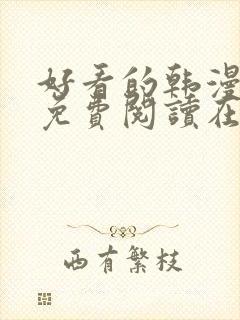 好看的韩漫
免費閱讀在
西有繁枝